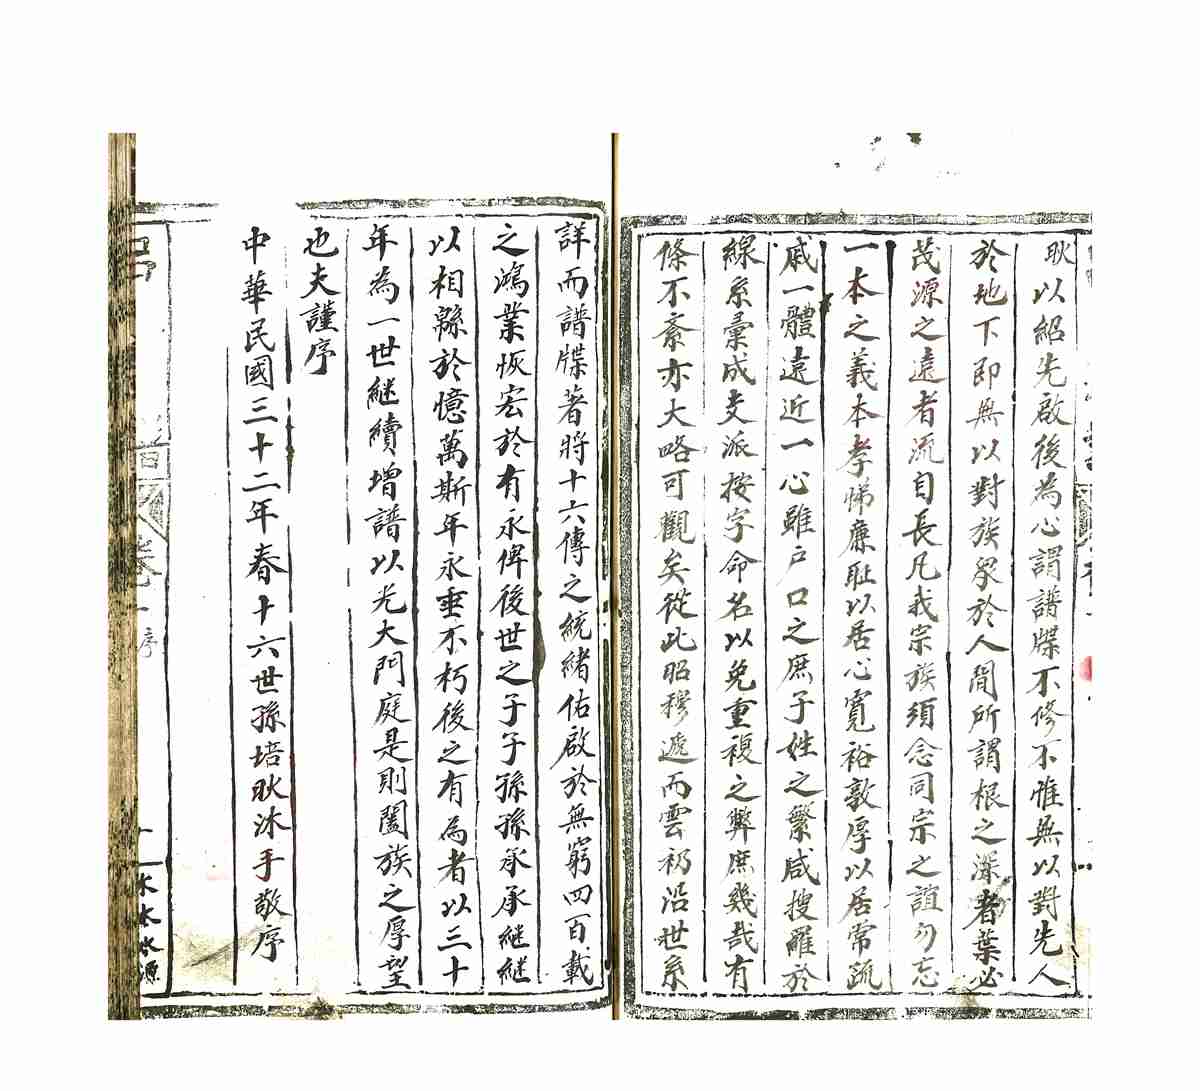 耿以紹先啟後為心謂譜牒不修不惟無以對先人
於地下即無以對族眾於人間所謂根之深者葉必
茂源之遠者流自長凡我宗族須念同宗之誼勿忘
一本之義本孝悌廉耻以居心寬裕敦厚以居常疏
戚一體遠近一心雖戶口之庶子姓之繁咸搜羅於
線系彙成支派按字命名以免重複之弊庶幾哉有
條不紊亦大略可觀矣從此昭穆遞而雲礽沿世系
詳而譜牒著將十六傳之統緒佑啟於無窮四百載
之鴻業恢宏於有永俾後世之子子孫孫承承繼繼
以相緜於億萬斯年永垂不朽後之有為者以三十
年為一世継續增譜以光大門庭是則闔族之厚望
也夫謹序
中華民國三十二年春十六世孫培耿沐手敬序
序
水木水源